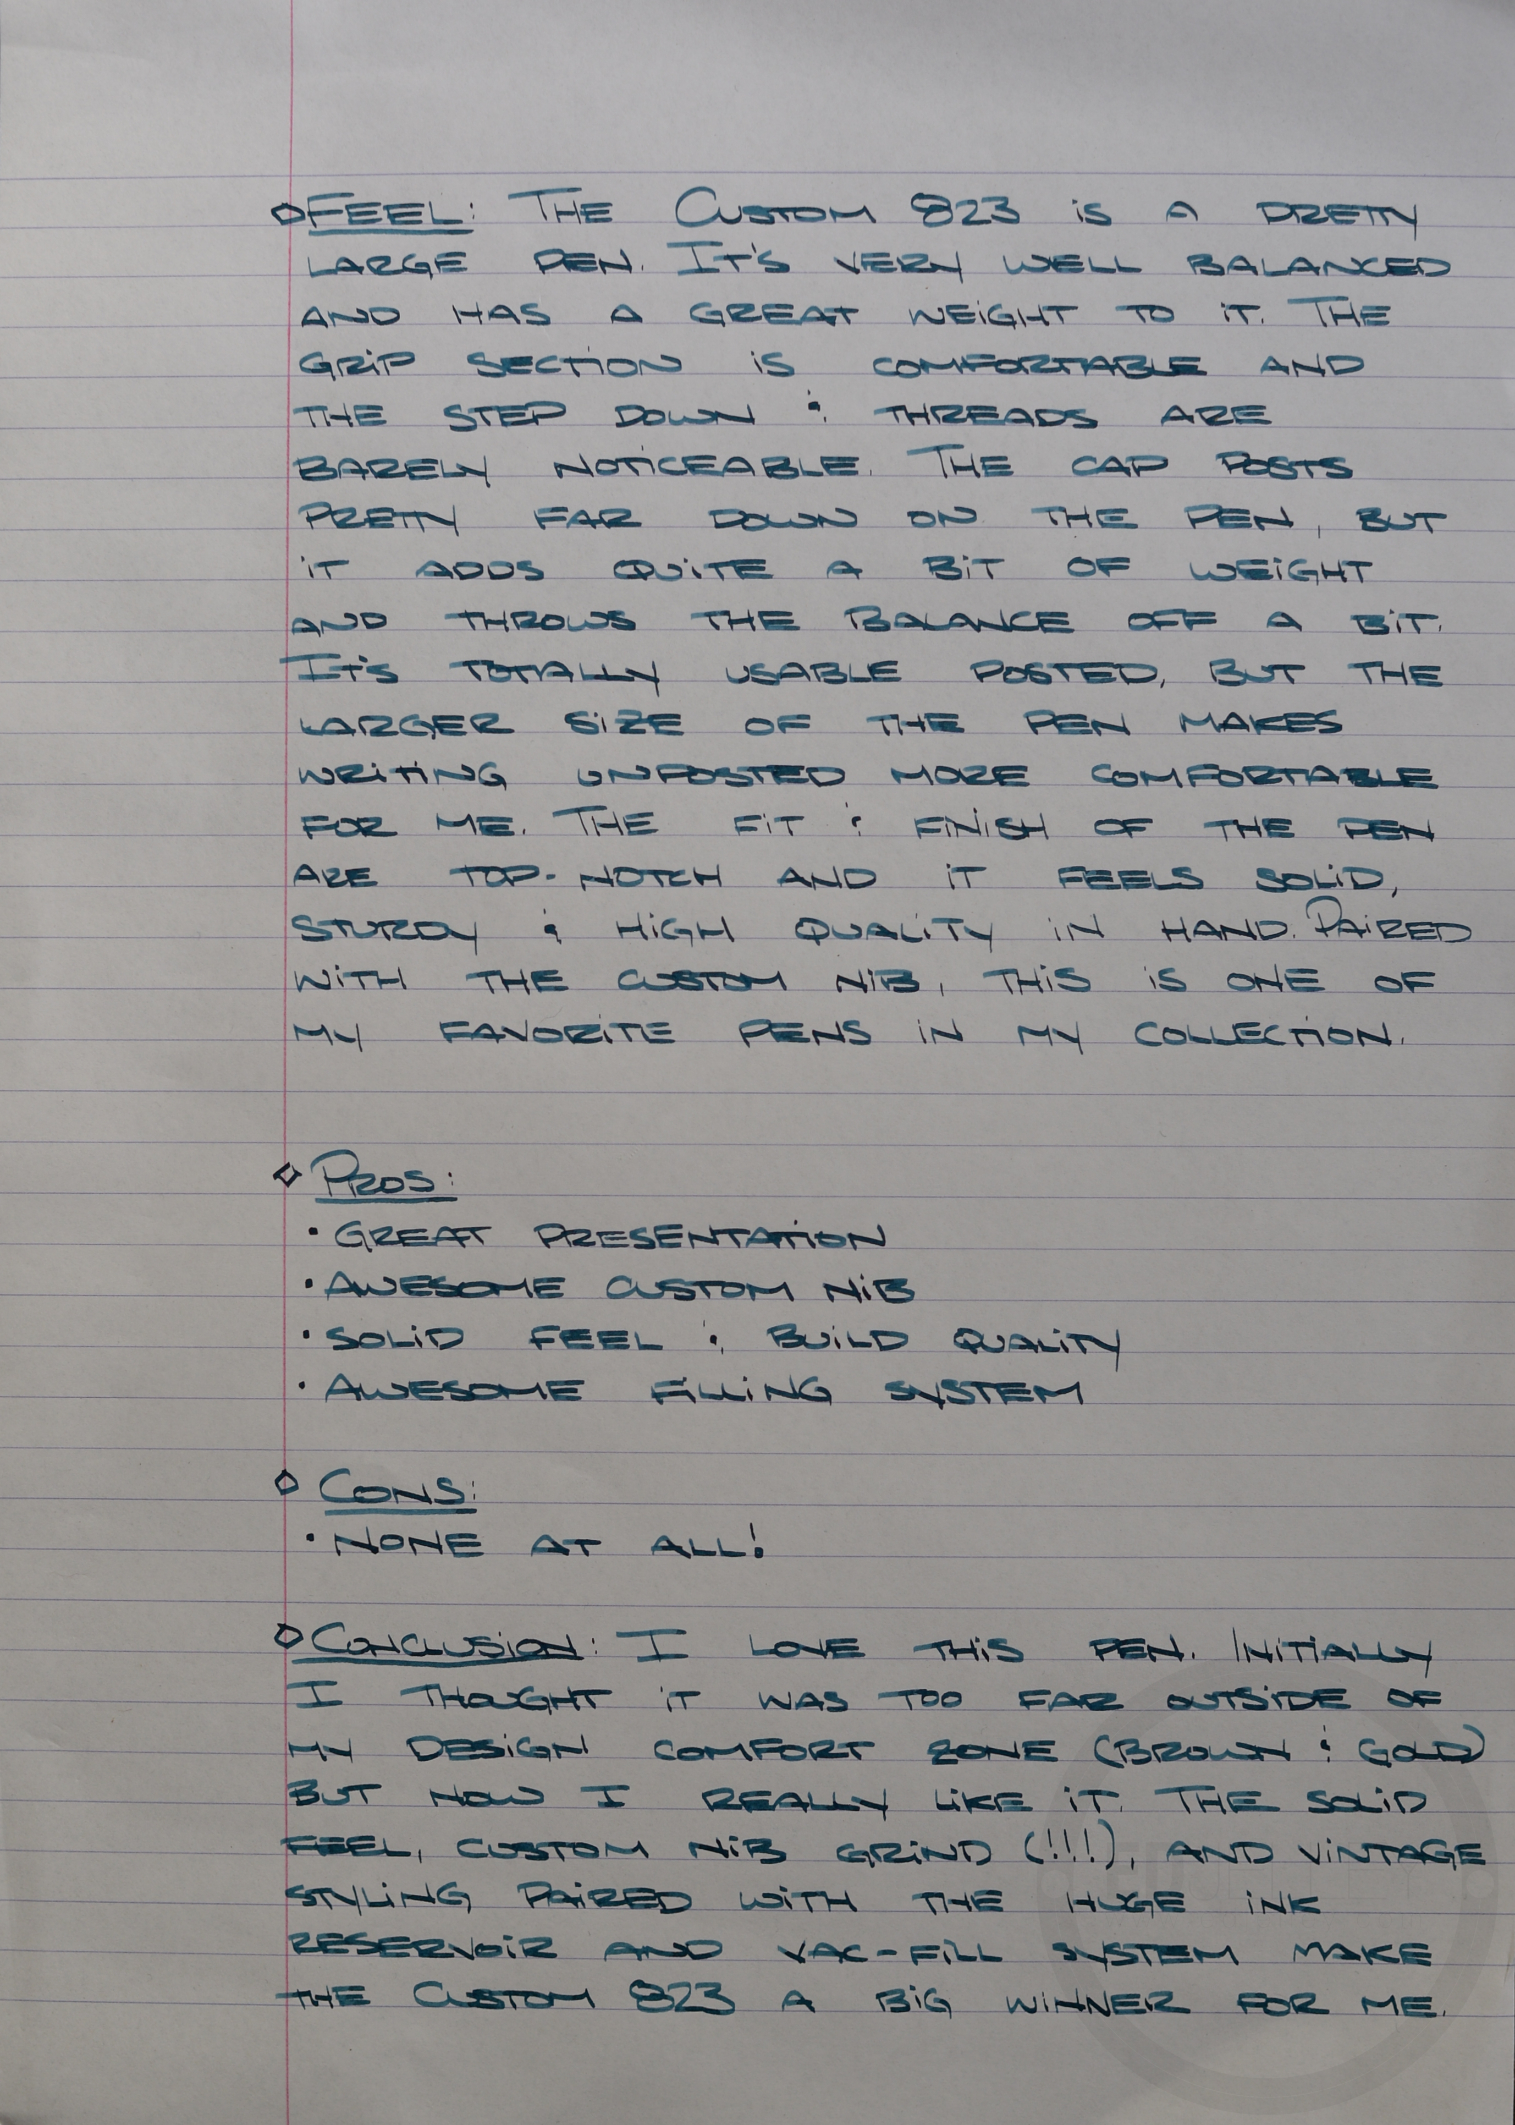 ◇ FEEL: THE CUSTOM 823 IS A PRETTY
LARGE PEN. IT'S VERY WELL BALANCED
AND HAS A GREAT WEIGHT TO IT. THE
GRIP SECTION IS COMFORTABLE AND
THE STEP DOWN & THREADS ARE
BARELY NOTICEABLE. THE CAP POSTS
PRETTY FAR DOWN ON THE PEN, BUT
IT ADDS QUITE A BIT OF WEIGHT
AND THROWS THE BALANCE OFF A BIT.
IT'S TOTALLY USABLE POSTED, BUT THE
LARGER SIZE OF THE PEN MAKES
WRITING UNPOSTED MORE COMFORTABLE
FOR ME. THE FIT & FINISH OF THE PEN
ARE TOP-NOTCH AND IT FEELS SOLID,
STURDY & HIGH QUALITY IN HAND. PAIRED
WITH THE CUSTOM NIB, THIS IS ONE OF
MY FAVORITE PENS IN MY COLLECTION.
◇ PROS:
• GREAT PRESENTATION
• AWESOME CUSTOM NIB
• SOLID FEEL & BUILD QUALITY
• AWESOME FILLING SYSTEM
◇ CONS:
• NONE AT ALL!
◇ CONCLUSION: I LOVE THIS PEN. INITIALLY
I THOUGHT IT WAS TOO FAR OUTSIDE OF
MY DESIGN COMFORT ZONE (BROWN & GOLD)
BUT NOW I REALLY LIKE IT. THE SOLID
FEEL, CUSTOM NIB GRIND (!!!), AND VINTAGE
STYLING PAIRED WITH THE HUGE INK
RESERVOIR AND VAC-FILL SYSTEM MAKE
THE CUSTOM 823 A BIG WINNER FOR ME.